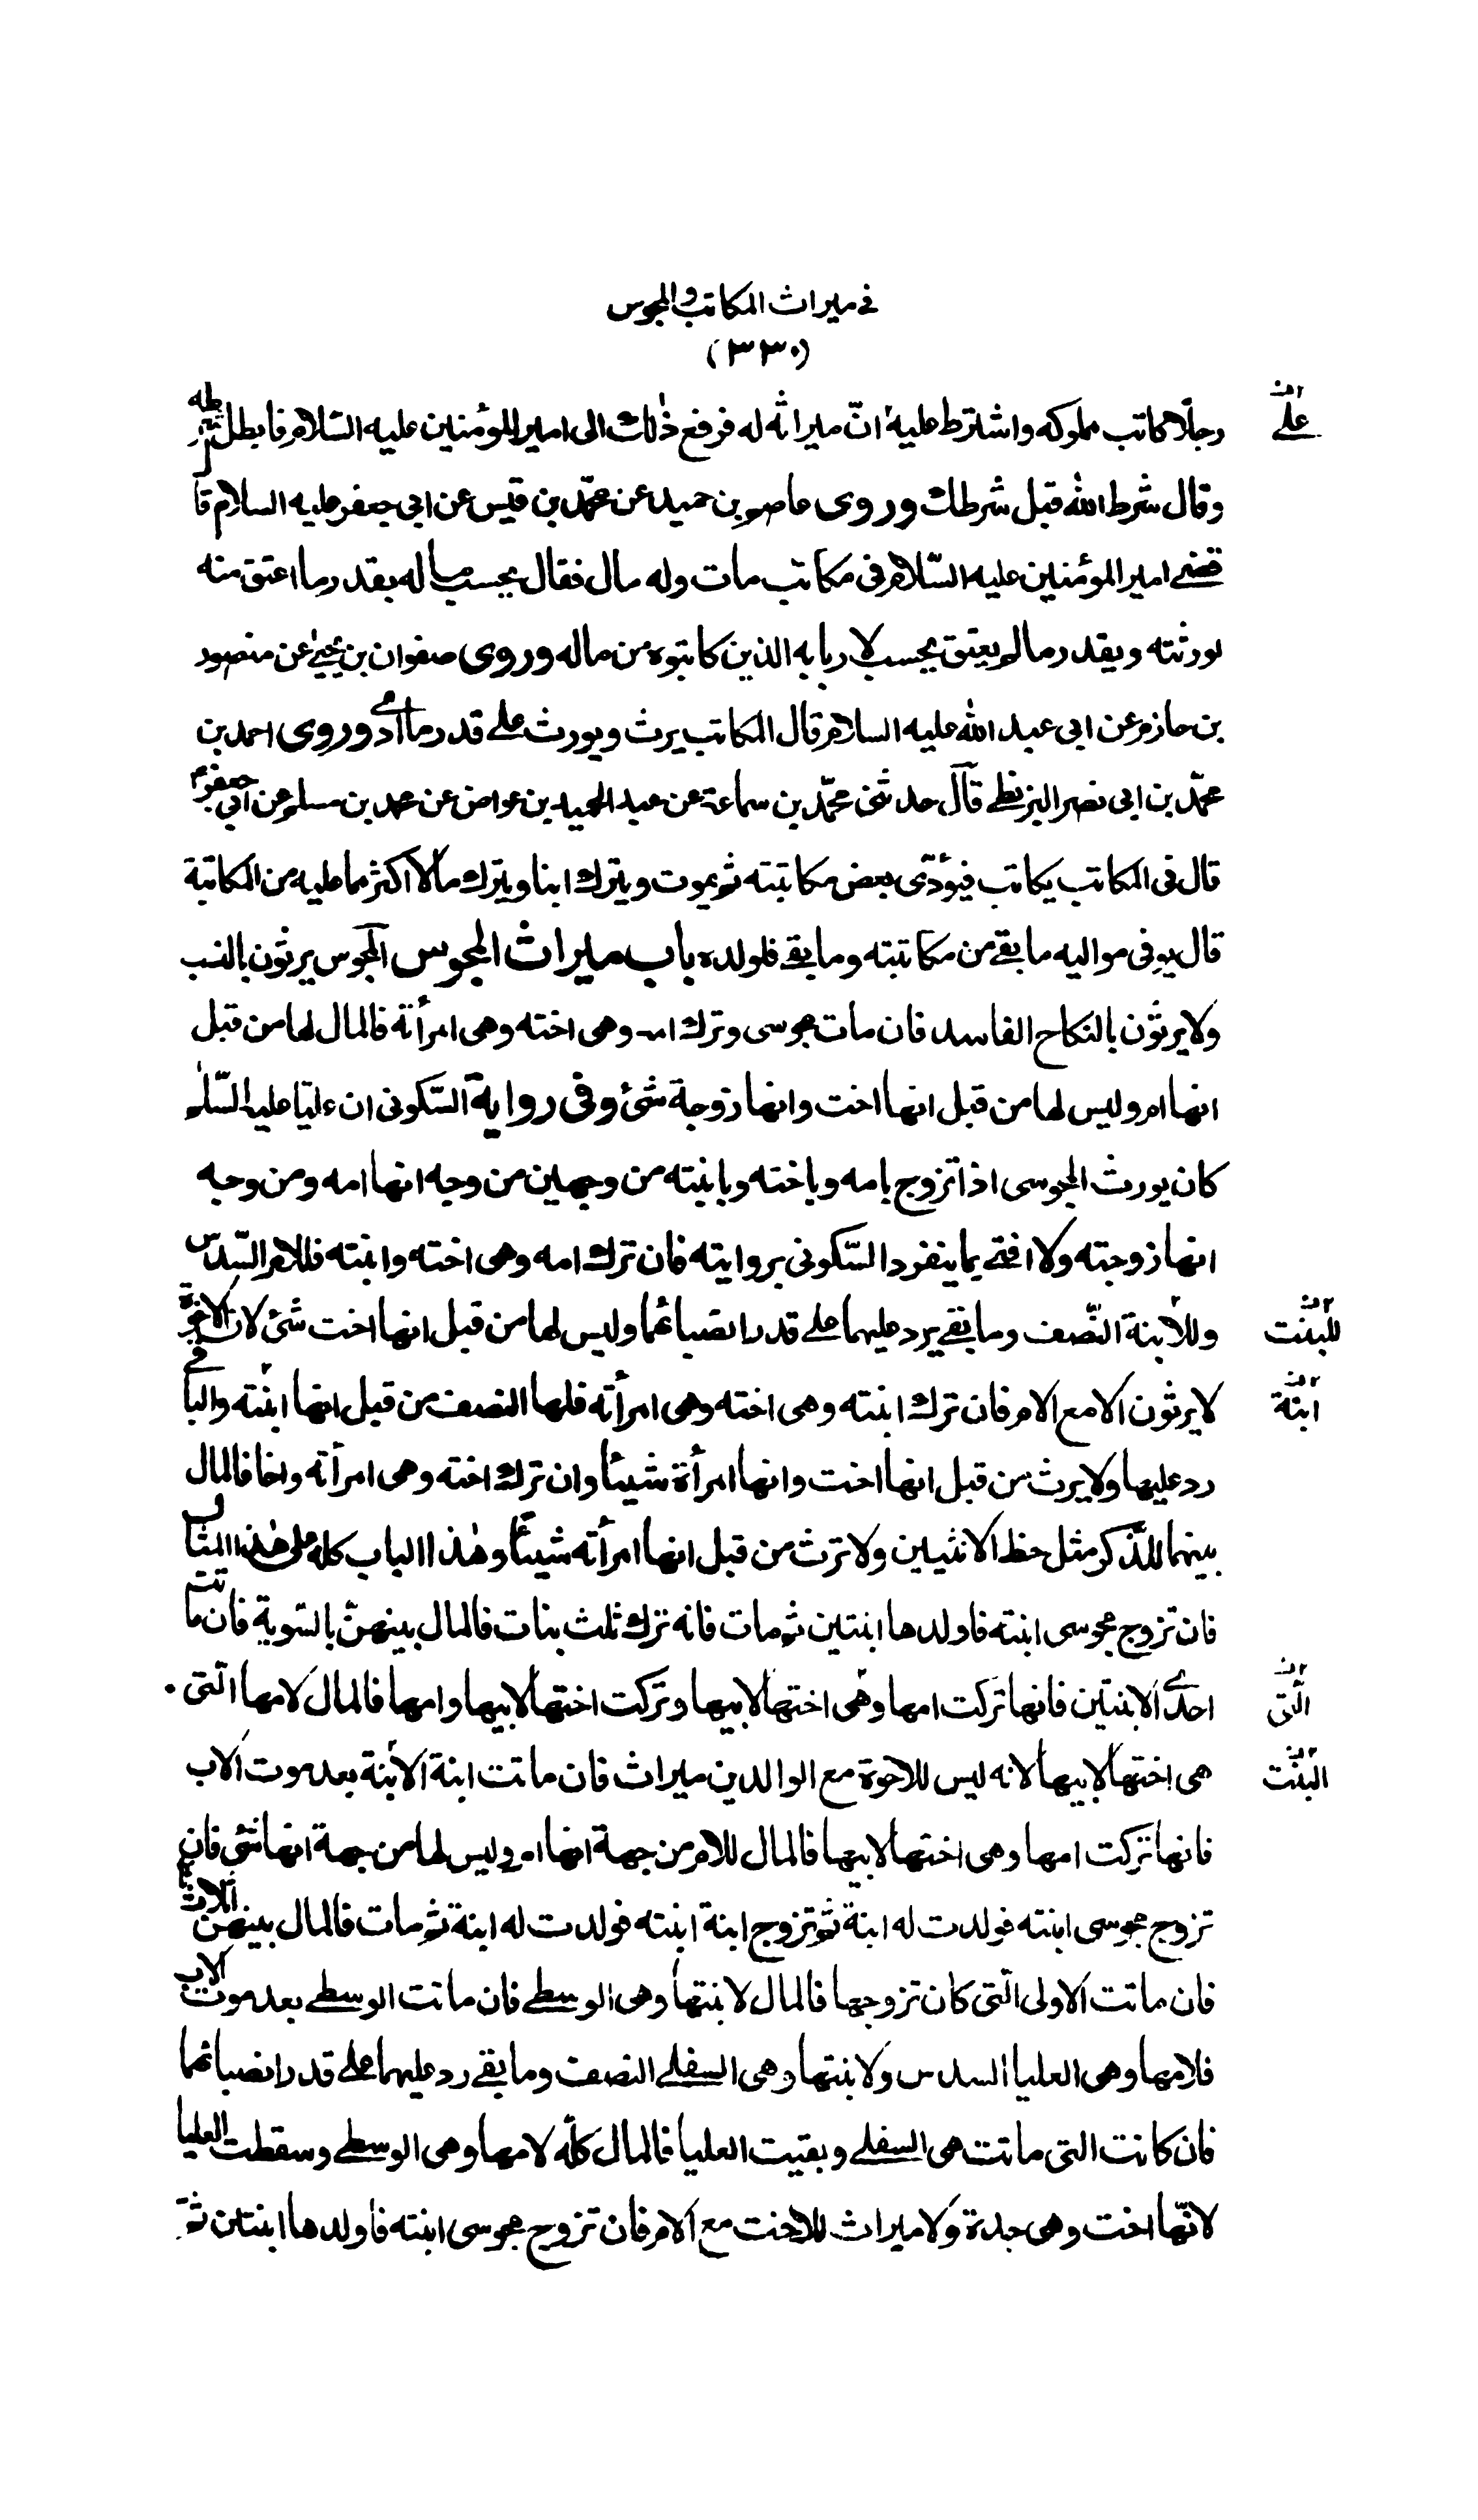 في ميراث المكاتب والمجوس
(٣٣٠)
رجلا كاتب مملوكه واشترط عليه انّ ميراثه له فرفع ذلك الى امير المؤمنين عليه السّلام فابطل شرطه
علے
وقال شرط الله قبل شرطك وروى عاصم بن حميد عن محمّد بن قيس عن ابى جعفر عليه السلام قال
قضے امير المؤمنين عليه السّلام فى مكاتب مات وله مال فقال يحسب ما له بقدر ما اعتق منه
لورثته وبقدر ما لم يعتق يحسب لاربابه الذين كاتبوه من ماله وروى صفوان بن يحيىٰ عن منصور
بن حازم عن ابى عبد الله عليه السلام قال المكاتب يرث ويورث علے قدر ما ادى وروى احمد بن
محمّد بن ابى نصر البزنطے قال حدثنى محمّد بن سماعة عن عبد الحميد بن عواض عن محمد بن مسلم عن ابى جعفر ع
قال فى المكاتب يكاتب فيؤدّى بعض مكاتبته ثم يموت ويترك ابنا ويترك مالا اكثر مما عليه من المكاتبة
قال يوفى مواليه ما بقے من مكاتبته وما بقے فلولده باب ميراث المجوس المجوس يرثون بالنسب
ولا يرثون بالنكاح الفاسد فان مات مجوسى وترك امه وهى اخته وهى امرأته فالمال لها من قبل
انها ام وليس لها من قبل انها اخت وانها زوجة شئ وفى رواية السّكونى ان عليّا عليه السّلٰم
كان يورث المجوسى اذا تزوج بامه وباخته وبابنته من وجهين من وجه انها امه ومن وجه
انها زوجته ولا افتے بما ينفرد السّكونى بروايته فان ترك امه وهى اخته وابنته فللام السّدس
وللابنة النّصف وما بقے يرد عليهما علے قدر انصبائهما وليس لها من قبل انها اخت شئ لان الاخوة
للبنت
لا يرثون الا مع الام فان ترك ابنته وهى اخته وهى امرأته فلها النصف من قبل انها ابنته والباقے
ابنة
رد عليها ولا يرث من قبل انها اخت وانها امرأة شيئا وان ترك اخته وهى امرأته واخا فالمال
بينهما للذّكر مثل حظ الانثيين ولا ترث من قبل انها امرأته شيئا وهٰذا الباب كله على هٰذا المثال
فان تزوج مجوسى ابنته فاولدها ابنتين ثم مات فانه ترك ثلث بنات فالمال بينهنّ بالسّوية فان ماتت
احدے الابنتين فانها تركت امها وهى اختها لابيها وتركت اختها لابيها وامها فالمال لامها الّتى
الّتى
هى اختها لابيها لانه ليس للاخوة مع الوالدين ميراث فان ماتت ابنة الابنة بعد موت الاب
البنت
فانها تركت امها وهى اختها لابيها فالمال للام من جهة انها ام وليس لها من جهة انها شئ فان
تزوج مجوسى ابنته فولدت له ابنة ثم تزوج ابنة ابنته فولدت له ابنة ثم مات فالمال بينهن اثلاثا
فان ماتت الاولى الّتى كان تزوجها فالمال لابنتها وهى الوسطے فان ماتت الوسطے بعد موت الاب
فلامها وهى العليا السدس ولابنتها وهى السفلے النصف وما بقے رد عليهما علے قدر انصبائهما
فان كانت التى ماتت هى السفلے وبقيت العليا فالمال كلّه لامها وهى الوسطے وسقطت العليا
لانّها اخت وهى جدة ولا ميراث للاخت مع الام فان تزوج مجوسى ابنته فاولدها ابنتين ثم